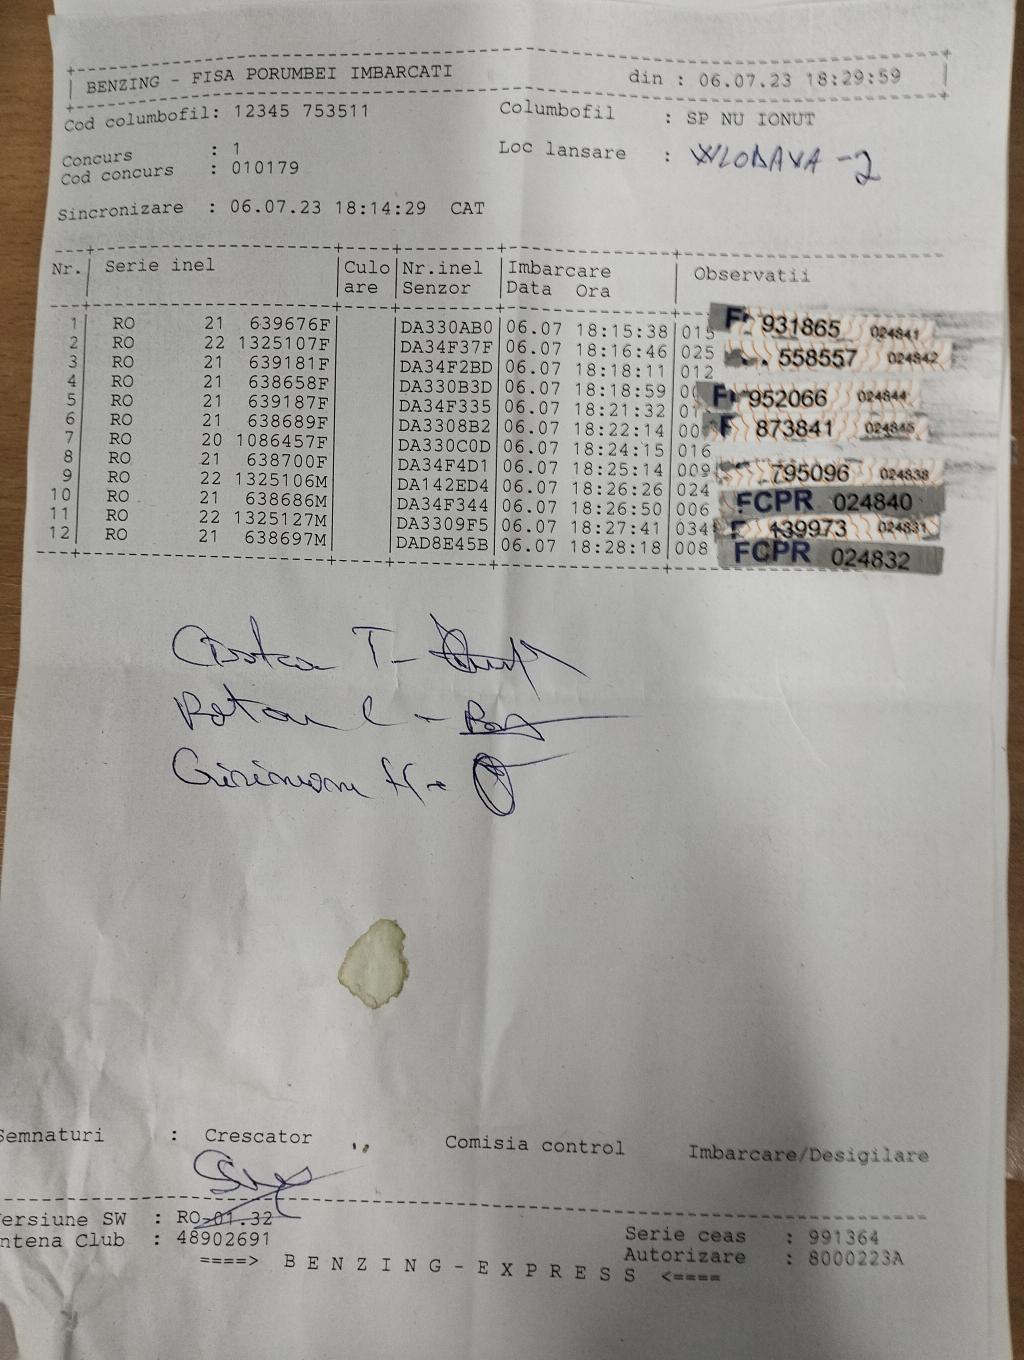 BENZING - FISA PORUMBEI IMBARCATI din : 06.07.23 18:29:59
Cod columbofil: 12345 753511 Columbofil : SP NU IONUT
Concurs : 1 Loc lansare : WLODAVA-2
Cod concurs : 010179
Sincronizare : 06.07.23 18:14:29 CAT
Nr. Serie inel Culo Nr.inel Imbarcare Observatii
are Senzor Data Ora
1 RO 21 639676F DA330AB0 06.07 18:15:38 015 931865 024841
2 RO 22 1325107F DA34F37F 06.07 18:16:46 025 558557 024842
3 RO 21 639181F DA34F2BD 06.07 18:18:11 012
4 RO 21 638658F DA330B3D 06.07 18:18:59 952066 024844
5 RO 21 639187F DA34F335 06.07 18:21:32 873841 024845
6 RO 21 638689F DA3308B2 06.07 18:22:14
7 RO 20 1086457F DA330C0D 06.07 18:24:15 016
8 RO 21 638700F DA34F4D1 06.07 18:25:14 009 795096 024838
9 RO 22 1325106M DA142ED4 06.07 18:26:26 024 FCPR 024840
10 RO 21 638686M DA34F344 06.07 18:26:50 006
11 RO 22 1325127M DA3309F5 06.07 18:27:41 034 439973 024831
12 RO 21 638697M DAD8E45B 06.07 18:28:18 008 FCPR 024832
Semnaturi : Crescator Comisia control Imbarcare/Desigilare
ersiune SW : RO-01.32
ntena Club : 48902691 Serie ceas : 991364
====> BENZING-EXPRESS <==== Autorizare : 8000223A